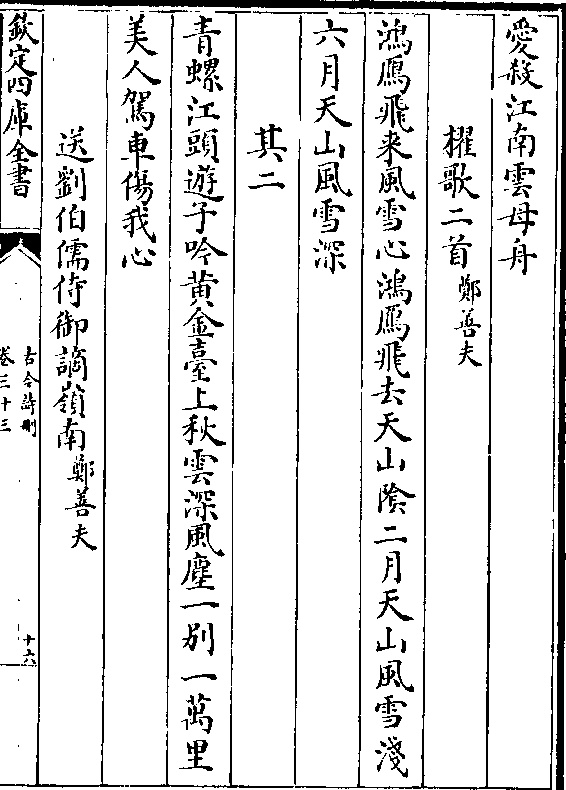 愛殺江南雲母舟
櫂歌二首鄭善夫
鴻鴈飛来風雪心鴻鴈飛去天山隂二月天山風雪淺
六月天山風雪深
其二
青螺江頭遊子吟黄金臺上秋雲深風塵一別一萬里
美人駕車傷我心
送劉伯儒侍御謫嶺南鄭善夫
欽定四庫全書
古今詩刪
卷三十三
十六